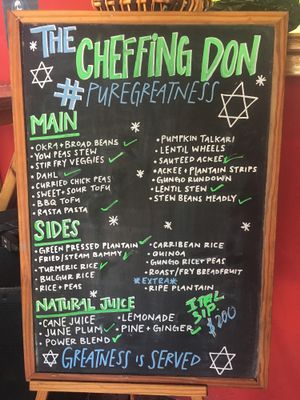 THE
CHEFFING DON
#PUREGREATNESS
MAIN
• OKRA + BROAD BEANS
• YOW PEAS STEW
• STIR FRY VEGGIES
• DAHL
• CURRIED CHICK PEAS
• SWEET + SOUR TOFU
• BBQ TOFU
• RASTA PASTA
• PUMPKIN TALKARI
• LENTIL WHEELS
• SAUTEED ACKEE
• ACKEE + PLANTAIN STRIPS
• GUNGO RUNDOWN
• LENTIL STEW
• STEW BEANS MEADLY
SIDES
• GREEN PRESSED PLANTAIN
• FRIED/STEAM BAMMY
• TURMERIC RICE
• BULGUR RICE
• RICE + PEAS
• CARRIBEAN RICE
• QUINOA
• GUNGO RICE + PEAS
• ROAST/FRY BREADFRUIT
*EXTRA*
• RIPE PLANTAIN
NATURAL JUICE
• CANE JUICE
• JUNE PLUM
• POWER BLEND
• LEMONADE
• PINE + GINGER
ITAL
SIP
$200
GREATNESS IS SERVED